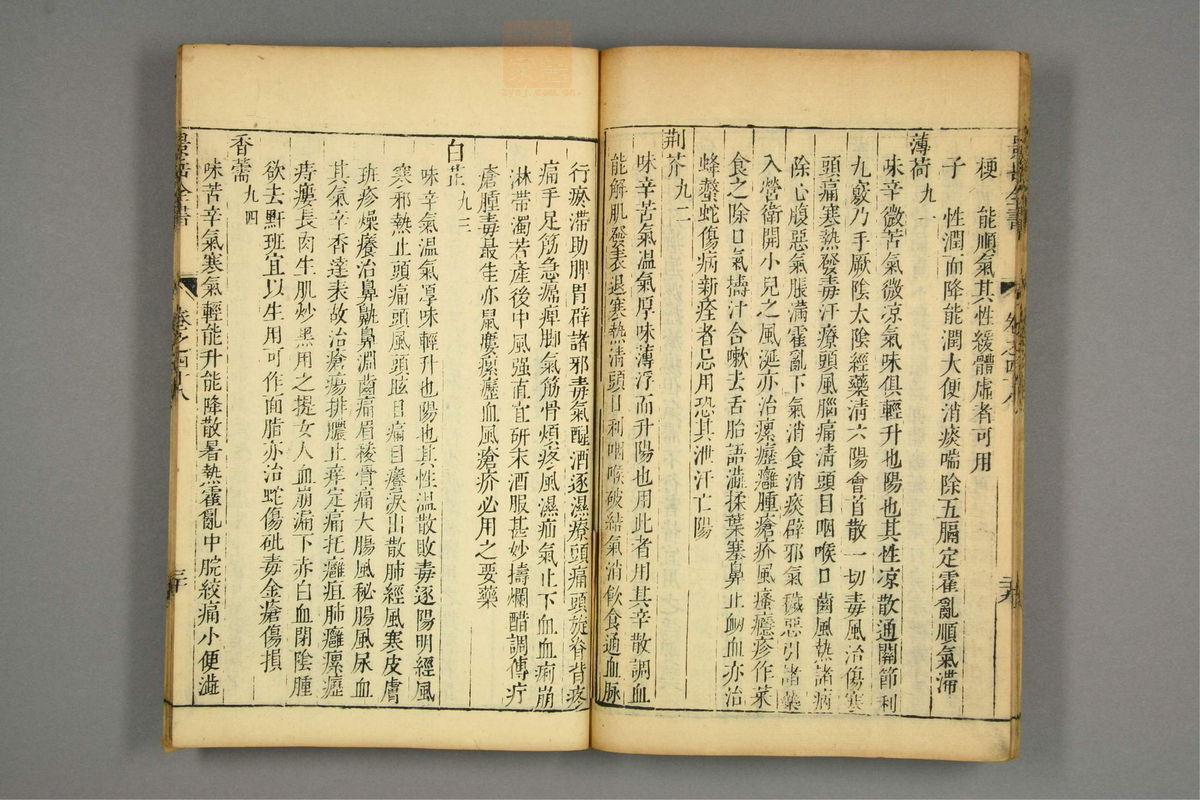 景岳全書
卷之四十八
梗　能順氣其性緩體虛者可用
子　性潤而降能潤大便消痰喘除五膈定霍亂順氣滯
薄荷九一
味辛微苦氣微凉氣味俱輕升也陽也其性凉散通關節利
九竅乃手厥陰太陰經藥清六陽會首散一切毒風治傷寒
頭痛寒熱發毒汗療頭風腦痛清頭目咽喉口齒風熱諸病
除心腹惡氣脹滿霍亂下氣消食消痰辟邪氣穢惡引諸藥
入營衛開小兒之風涎亦治瘰癧癰腫瘡疥風瘙癮疹作菜
食之除口氣擣汁含嗽去舌胎語澁揉葉塞鼻止衂血亦治
蜂螫蛇傷病新痊者忌用恐其泄汗亡陽
荆芥九二
味辛苦氣温氣厚味薄浮而升陽也用此者用其辛散調血
能解肌發表退寒熱清頭目利咽喉破結氣消飲食通血脉
行瘀滯助脾胃辟諸邪毒氣醒酒逐濕療頭痛頭旋脊背疼
痛手足筋急㿏痺脚氣筋骨煩疼風濕疝氣止下血血痢崩
淋帶濁若產後中風强直宜研末酒服甚妙擣爛醋調傅疔
瘡腫毒最佳亦鼠瘻瘰癧血風瘡疥必用之要藥
白芷九三
味辛氣温氣厚味輕升也陽也其性温散敗毒逐陽明經風
寒邪熱止頭痛頭風頭眩目痛目癢淚出散肺經風寒皮膚
班疹燥癢治鼻鼽鼻淵齒痛眉稜骨痛大腸風秘腸風尿血
其氣辛香達表故治瘡瘍排膿止痒定痛托癰疽肺癰瘰癧
痔瘻長肉生肌炒黑用之提女人血崩漏下赤白血閉陰腫
欲去黚班宜以生用可作面脂亦治蛇傷砒毒金瘡傷損
香薷九四
味苦辛氣寒氣輕能升能降散暑熱霍亂中脘絞痛小便澁
景岳全書
卷之四十八
三十